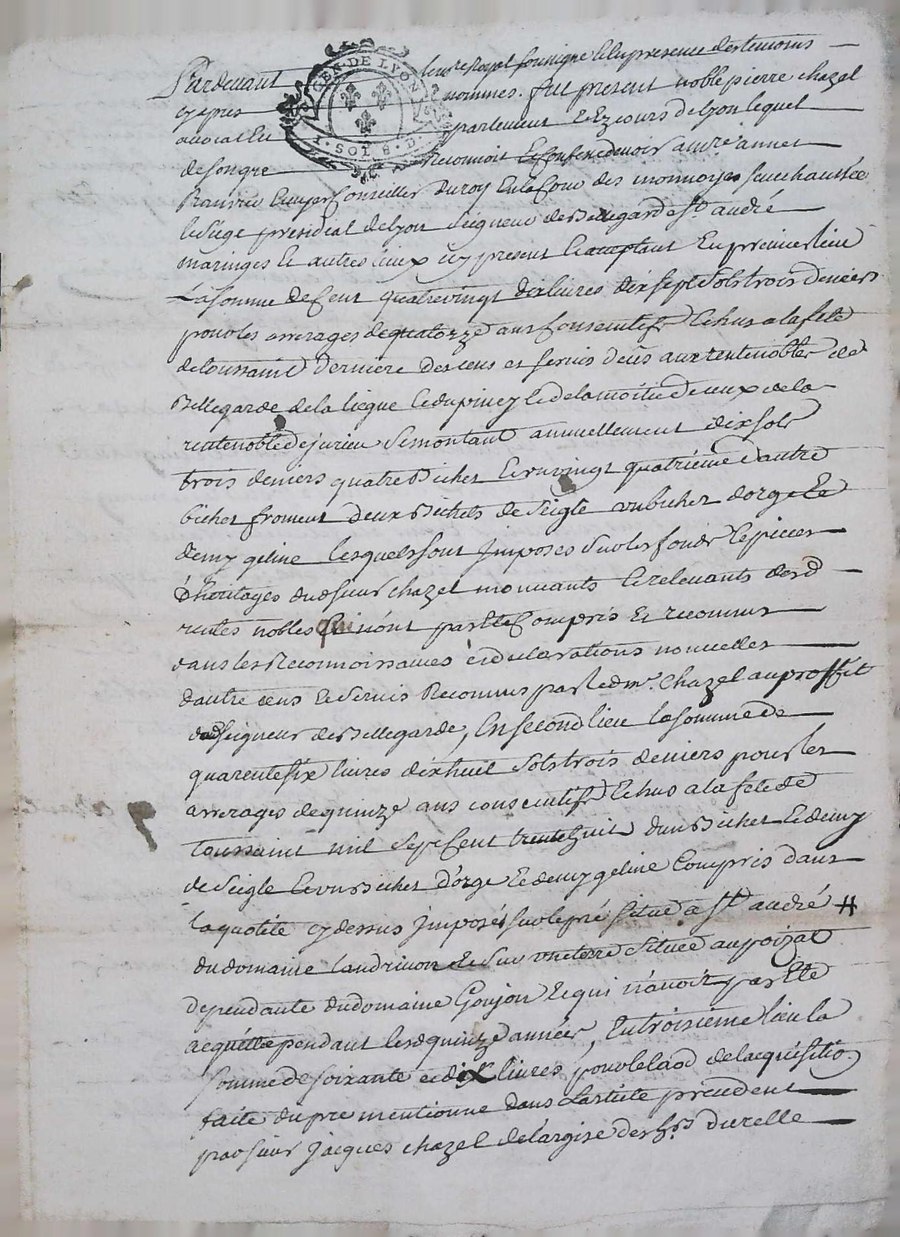 GEN. DE LYON
1. SOL 8. D.
Pardevant le no.re Royal soussigné Et En presence des temoins
cy apres nommés. fut present noble pierre chazel
avocat En parlement Et Ez cours de lyon lequel
de son gré Reconnoit Et Confesse devoir a
Ecuyer Conseiller du roy En la Cour des monnoyes senechaussée
le siege presidial de lyon seigneur de Bellegarde st. andré
maringes Et autres lieux icy present Et acceptant En premier lieu
La somme de Cent quatrevingt dix livres dix sept sols trois deniers
pour les arrerages de quatorze ans Consecutifs Echus a la fete
de toussaint derniere des cens et servis deûs aux rentes nobles de
Bellegarde de la liegue Et du piney Et de la moitié de ceux de la
rente noble de jurieu se montant annuellement dix sols
trois deniers quatre Bichet Et un vingt quatrieme d'autre
bichet froment deux Bichets de seigle un bichet d'orge Et
demy geline lesquels sont jmposés sur les fonds Et pieces
d'heritages dud. sieur chazel mouvants Et relevants desd.
rentes nobles qui n'ont pas Eté Compris Et reconnus
dans les Reconnoissances et declarations nouvelles
d'autre cens Et servis Reconnus par led. mr. chazel au proffit
dud. seigneur de Bellegarde, En second lieu la somme de
quarente six livres dix huit sols trois deniers pour les
arrerages de quinze ans consecutifs Echus a la fete de
Toussaint mil sept Cent trente huit d'un Bichet Et demy
de seigle Et un Bichet d'orge Et demy geline Compris dans
la quotité cy dessus jmposés sur le pré situé a st. andré #
du domaine landrivon Et sur une terre située au poizat
dependante du domaine Goujon Et qui n'avoit pas Eté
acquittée pendant lesd. quinze années, En troisieme lieu la
somme de soixante et dix livres pour le laod de l'acquisition
faite du pre mentionné dans L'article precedent
par sieur jacques chazel de l'argise des hrs. durelle